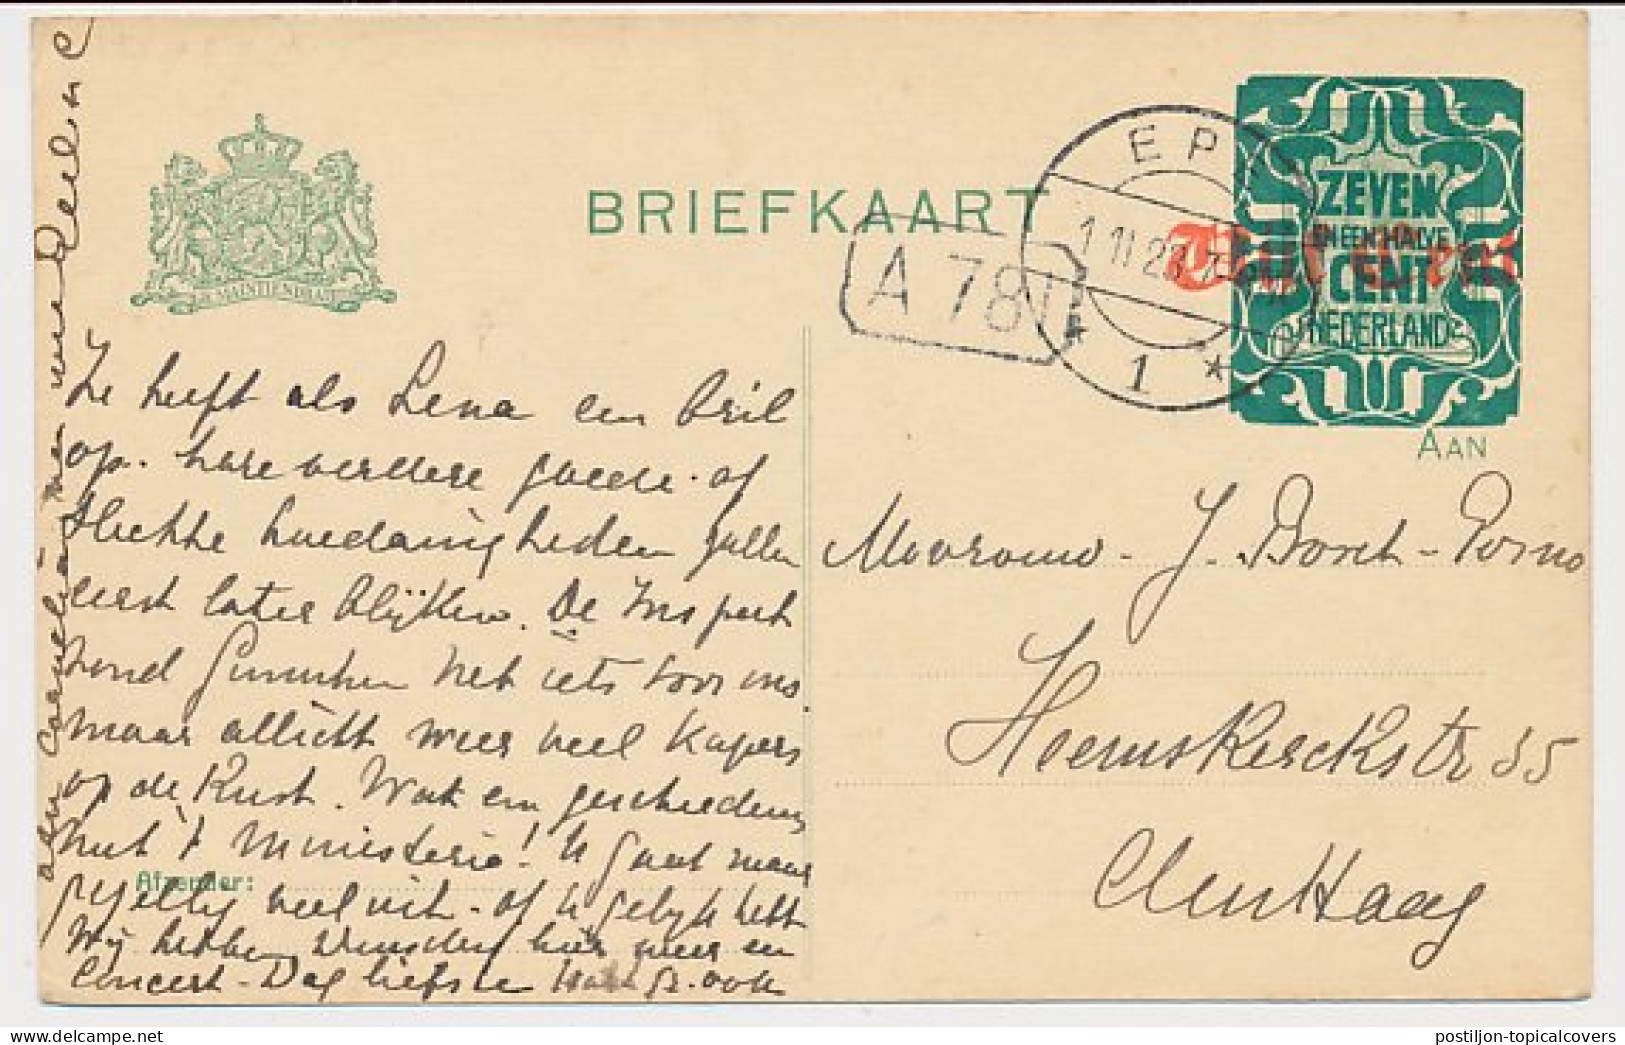 BRIEFKAART
JE MAINTIENDRAI
EPE
1 11 23
1
A 78
ZEVEN
EN EEN HALVE
CENT
NEDERLAND
Vijf Cent
AAN
Mevrouw J. Borch-Porno
Heemskerckstr 35
Den Haag
Ze heeft als Lena een bril
op. hare verdere goede of
slechte hoedanigheden zullen
eerst later blijken. De Inspect
vond Gunnthen net iets voor ons
maar allicht weer veel kapers
op de kust. Wat een geschiedenis
met 't Ministerie! Je gaat maar
veel uit - of je gelijk hebt
Afzender:
Wij hebben Woensdag hier weer een
Concert - Dag liefste ook